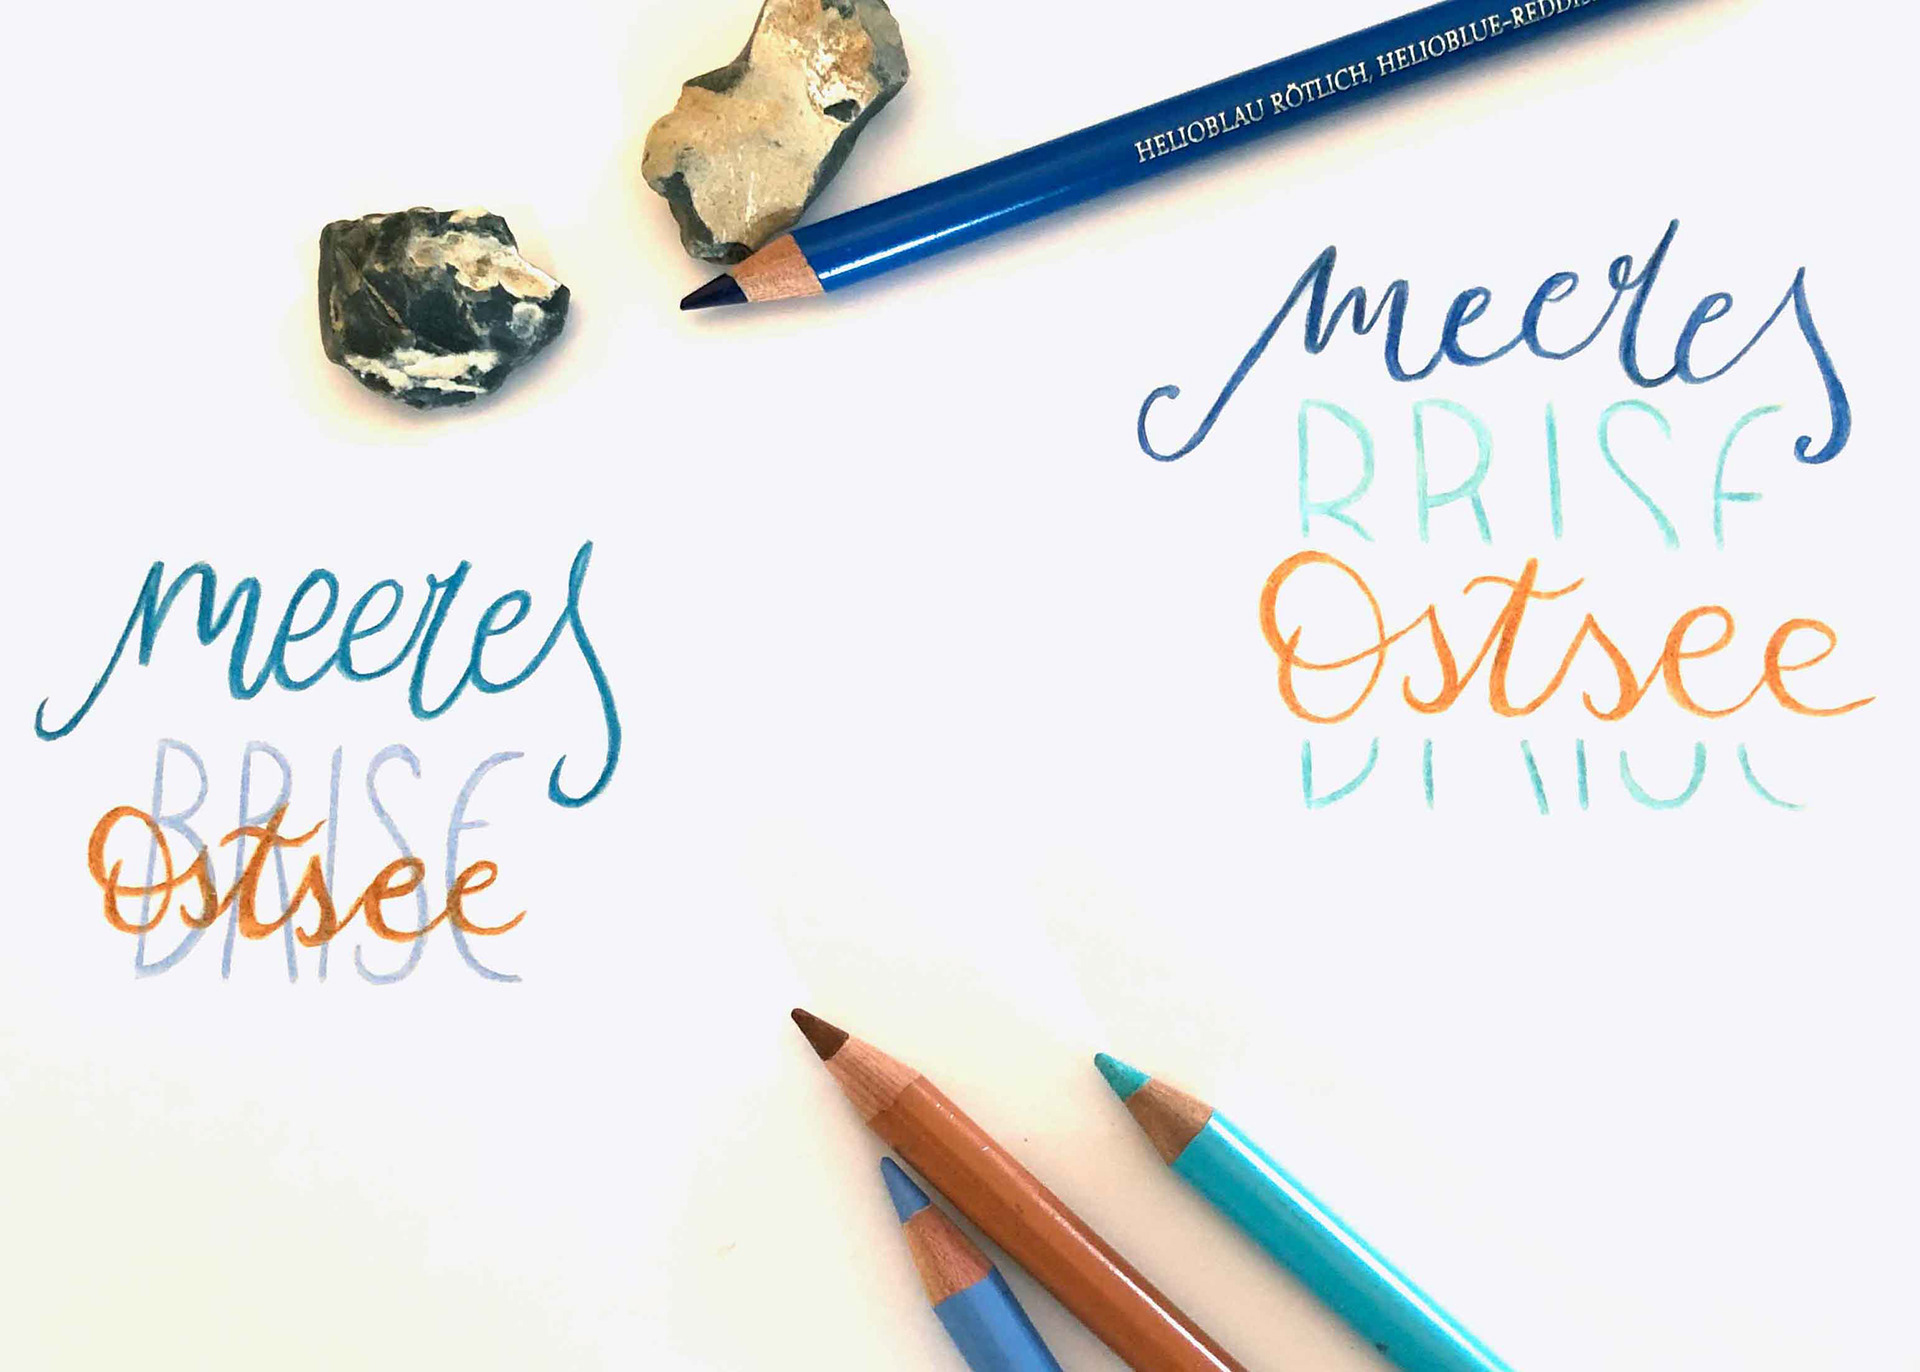 HELIOBLAU RÖTLICH, HELIOBLUE-REDDIS
meeres
BRISE
Ostsee
meeres
BRISE
Ostsee